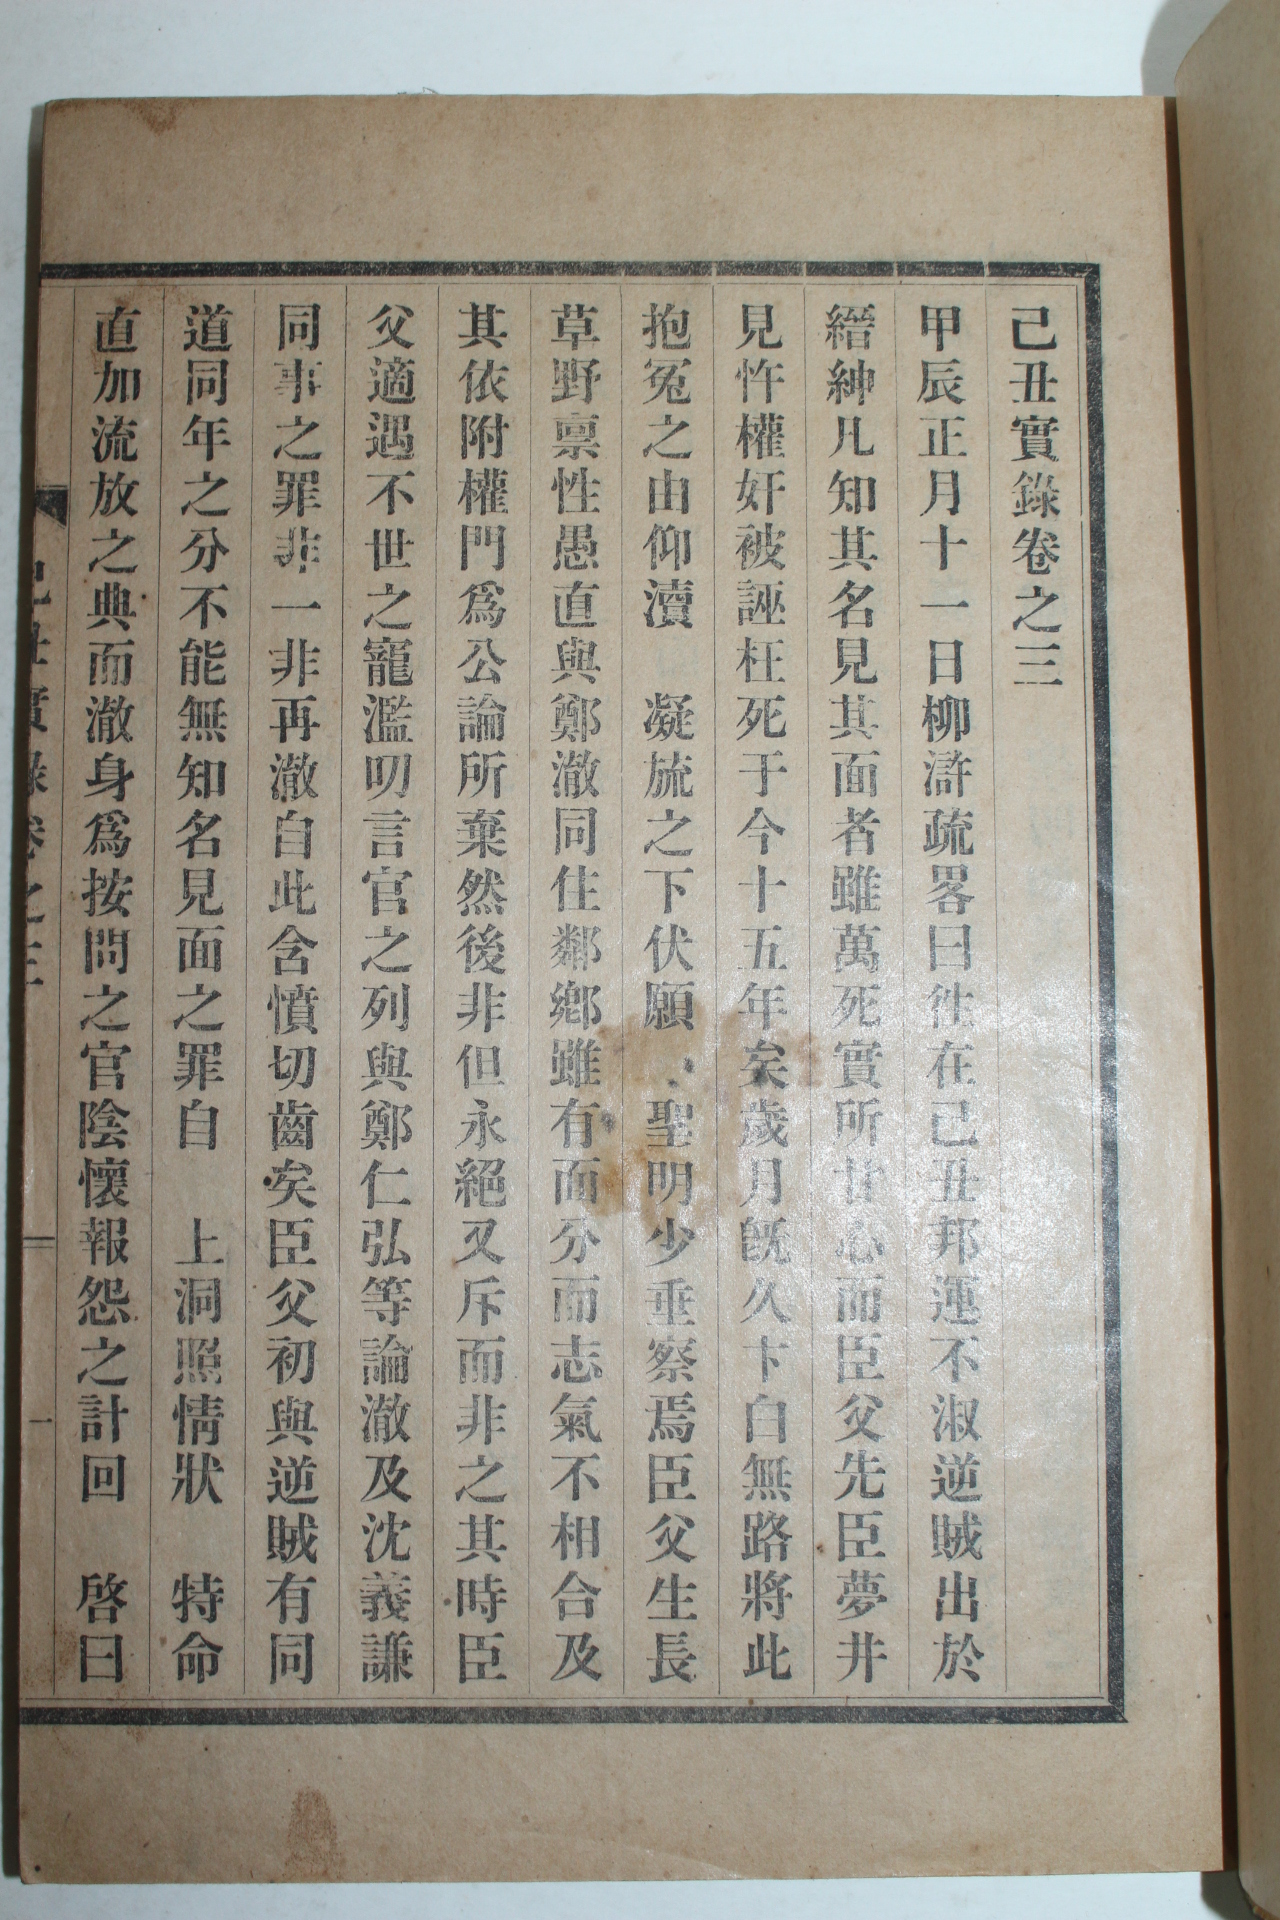 己丑實錄卷之三
甲辰正月十一日柳滸疏畧曰徃在己丑邦運不淑逆賊出於
縉紳凡知其名見其面者雖萬死實所甘心而臣父先臣夢井
見忤權奸被誣枉死于今十五年矣歲月旣久卞白無路將此
抱冤之由仰瀆　凝旒之下伏願　聖明少垂察焉臣父生長
草野禀性愚直與鄭澈同住鄰鄕雖有面分而志氣不相合及
其依附權門爲公論所棄然後非但永絕又斥而非之其時臣
父適遇不世之寵濫叨言官之列與鄭仁弘等論澈及沈義謙
同事之罪非一非再澈自此含憤切齒矣臣父初與逆賊有同
道同年之分不能無知名見面之罪自　上洞照情狀　特命
直加流放之典而澈身爲按問之官陰懷報怨之計回　啓曰
己丑實錄卷之三　一